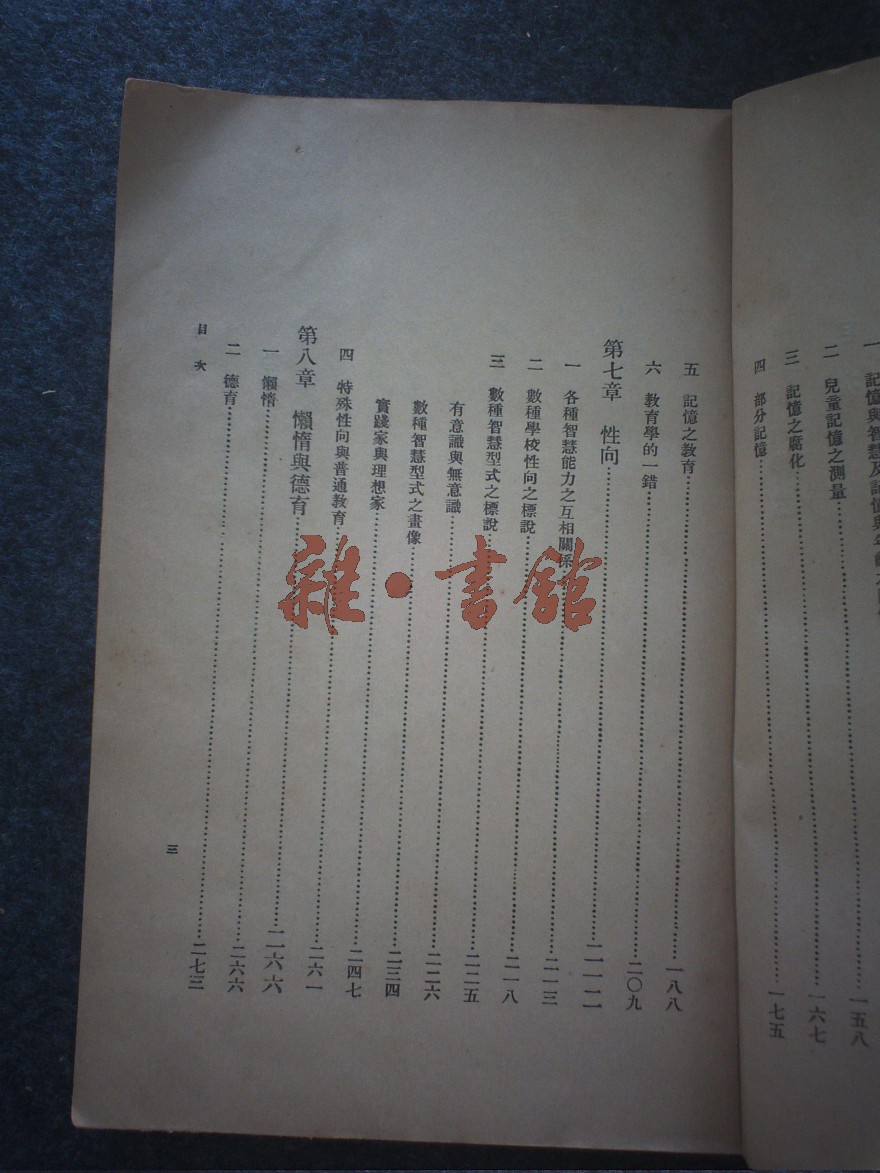 二 兒童記憶之測量……一五八
三 記憶之腐化……一六七
四 部分記憶……一七五
五 記憶之教育……一八八
六 教育學的一錯……二〇九
第七章 性向……二一二
一 各種智慧能力之互相關係……二一三
二 數種學校性向之標說……二一八
三 數種智慧型式之標說……二二五
有意識與無意識……二二六
數種智慧型式之畫像……二三四
實踐家與理想家……二四七
四 特殊性向與普通教育……二六一
第八章 懶惰與德育……二六六
一 懶惰……二六六
二 德育……二七三
目次
三
雜·書館